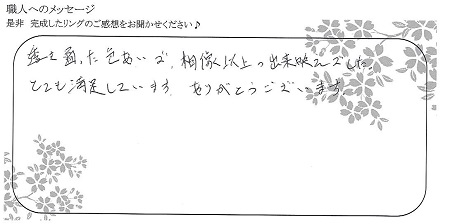 職人へのメッセージ
是非 完成したリングのご感想をお聞かせください♪
った色あいで、想像以上の出来映えでした。
とても満足しています。ありがとうございます。